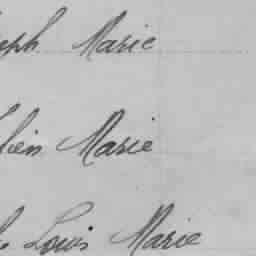 seph Marie
lien Marie
Louis Marie